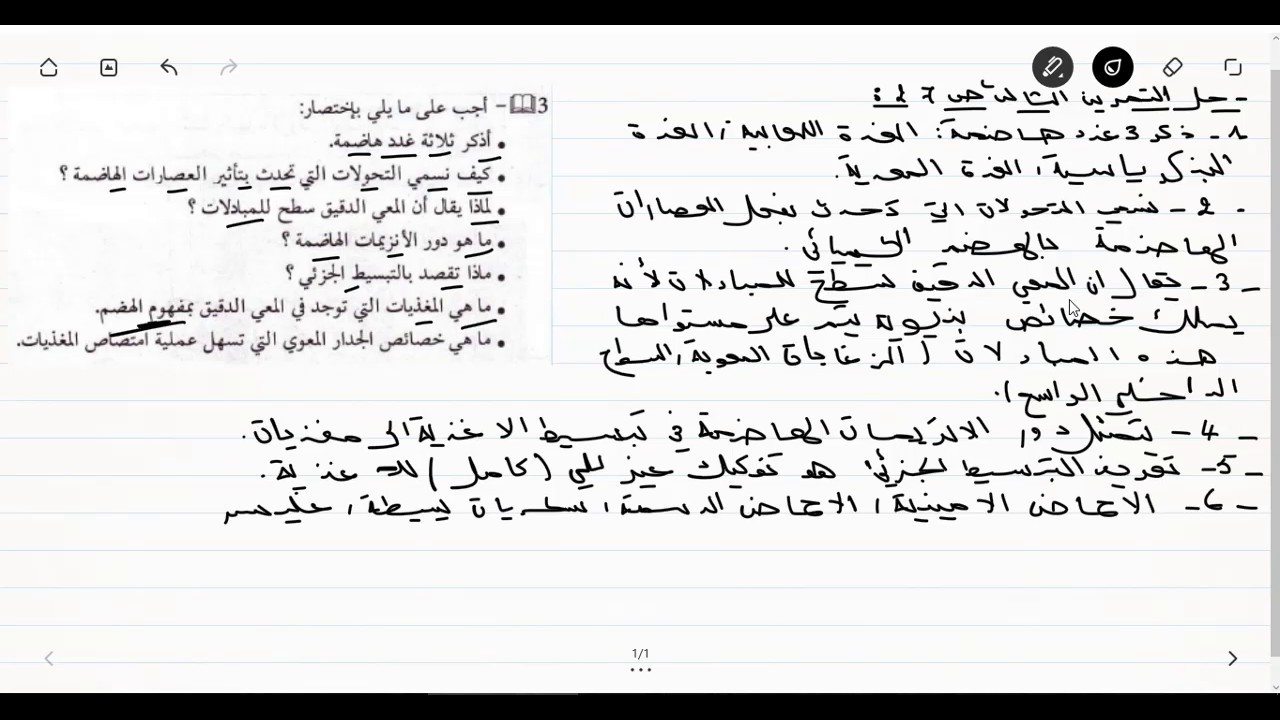 3 - أجب على ما يلي بإختصار:
• أذكر ثلاثة غدد هاضمة.
• كيف نسمي التحولات التي تحدث بتأثير العصارات الهاضمة ؟
• لماذا يقال أن المعي الدقيق سطح للمبادلات ؟
• ما هو دور الأنزيمات الهاضمة ؟
• ماذا تقصد بالتبسيط الجزئي ؟
• ما هي المغذيات التي توجد في المعي الدقيق بمفهوم الهضم.
• ما هي خصائص الجدار المعوي التي تسهل عملية امتصاص المغذيات.
- حل التمرين الثالث ص
1 - ذكر 3 غدد هاضمة: الغدة اللعابية، الغدة
البنكرياسية، الغدة المعدية.
2 - نسمي التحولات التي تحدث بفعل العصارات
الهاضمة بالهضم الكيميائي.
3 - يقال ان المعي الدقيق سطح للمبادلات لأنه
يملك خصائص بنيوية يتم على مستواها
هذه المبادلات (الزغابات المعوية، السطح
الداخلي الواسع).
4 - يتمثل دور الانزيمات الهاضمة في تبسيط الاغذية الى مغذيات.
5 - تعريف التبسيط الجزئي: هو تفكيك غير كلي (كامل) للاغذية.
6 - الاحماض الامينية، الاحماض الدسمة، سكريات بسيطة،
1/1